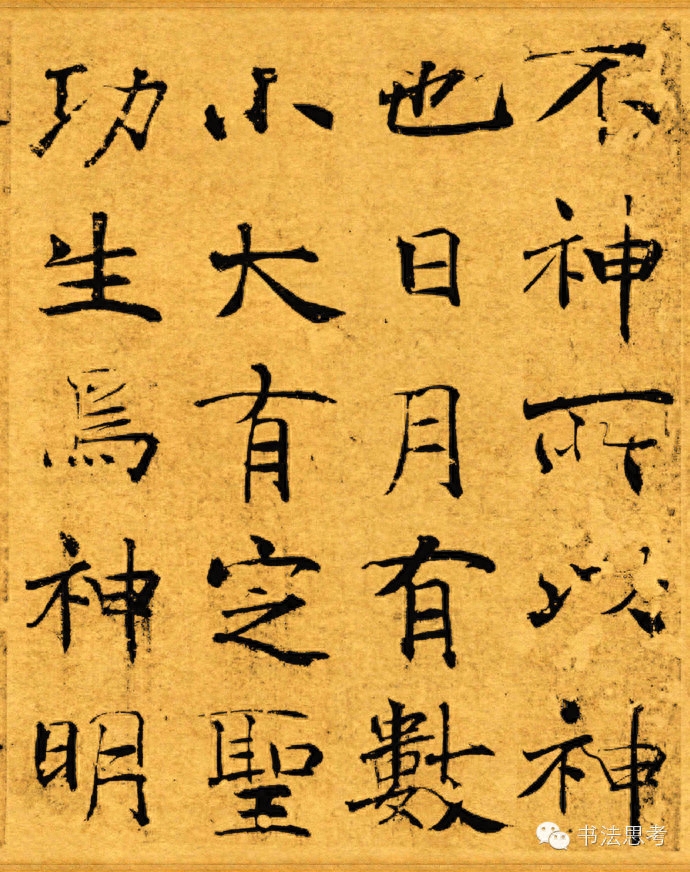 不神所以神
也日月有數
小大有定聖
功生焉神明
书法思考